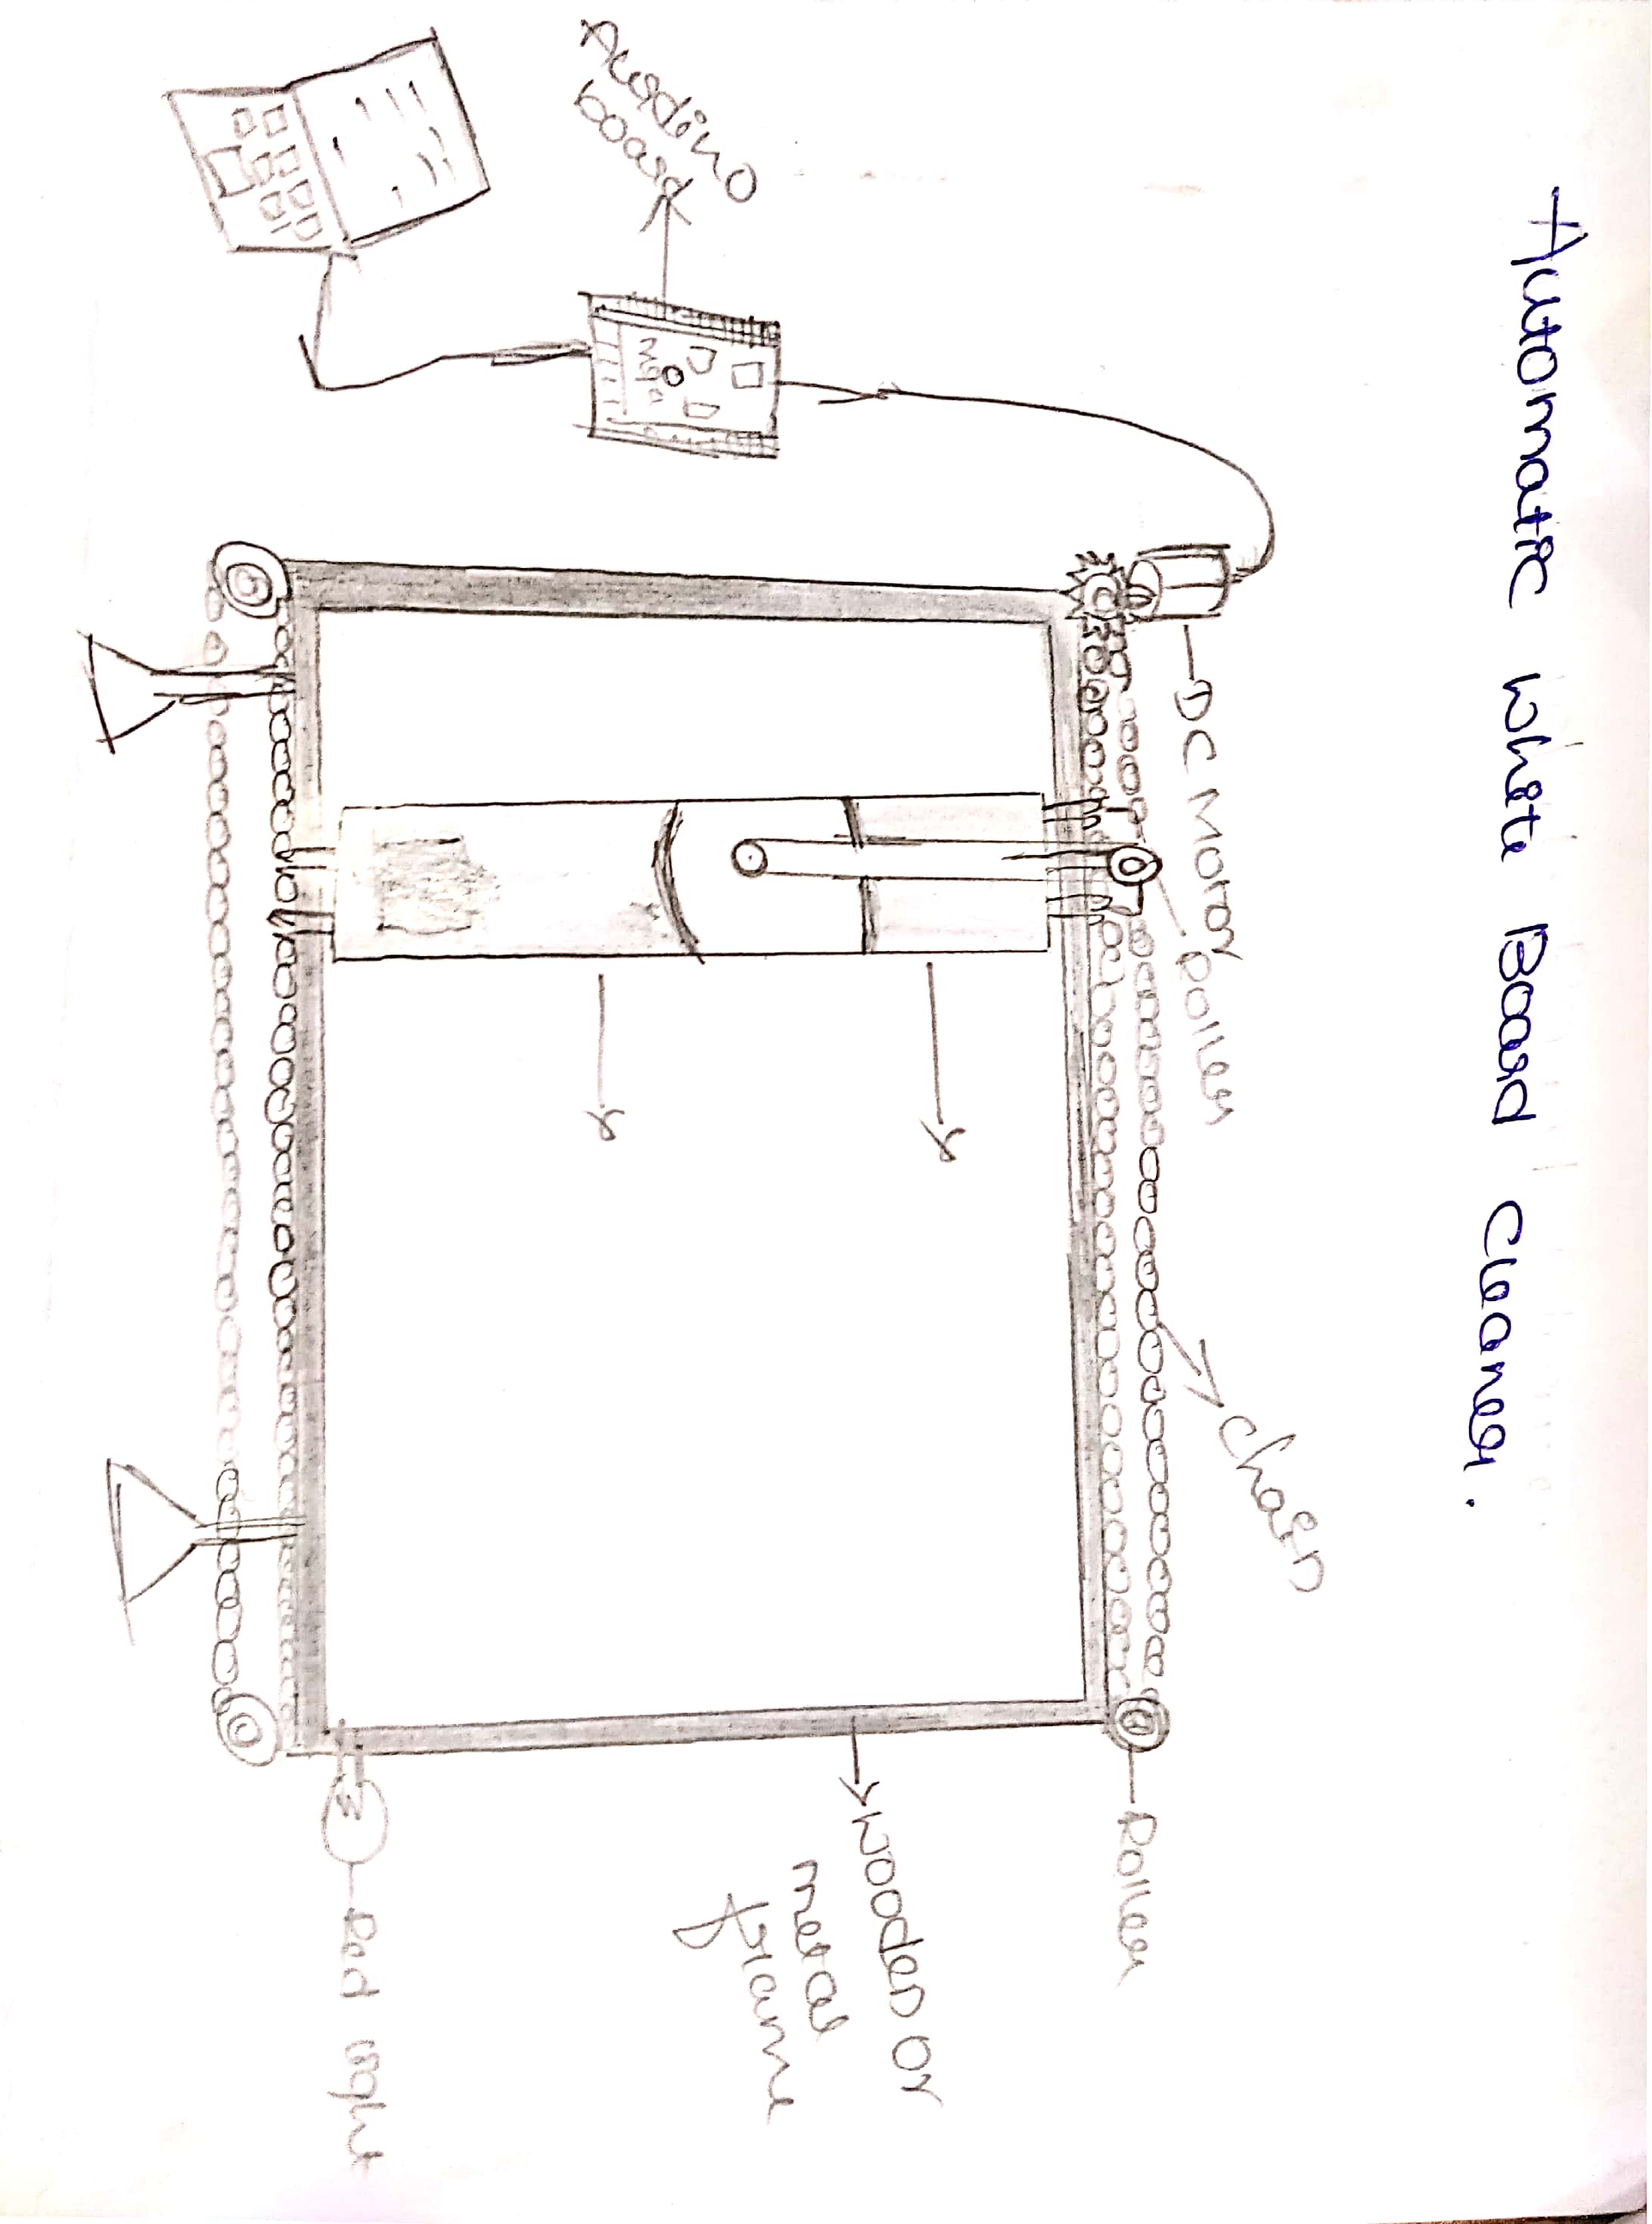 Automatic White Board Cleaner.
chain
DC Motor
Roller
Roller
Wooden or
metal
frame
Ausdino
board
Red light